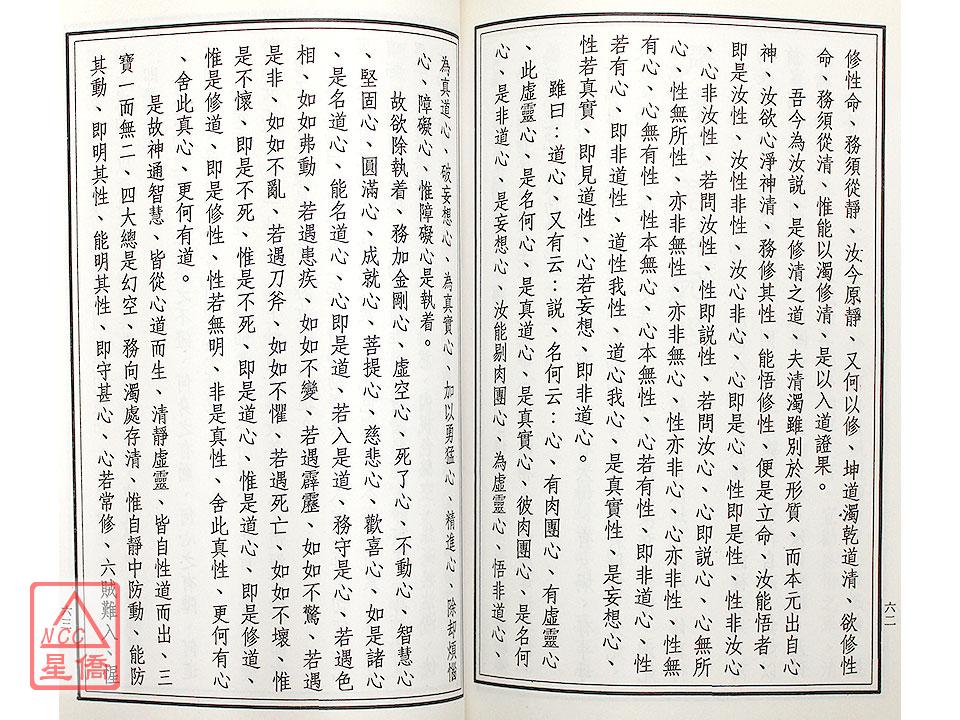 修性命、務須從靜、汝今原靜、又何以修、坤道濁乾道清、欲修性
命、務須從清、惟能以濁修清、是以入道證果。
吾今為汝說、是修清之道、夫清濁雖別於形質、而本元出自心
神、汝欲心淨神清、務修其性、能悟修性、便是立命、汝能悟者、
即是汝性、汝性非性、汝心非心、心即是心、性即是性、性非汝心
、心非汝性、若問汝性、性即說性、若問汝心、心即說心、心無所
心、性無所性、亦非無性、亦非無心、性亦非心、心亦非性、性無
有心、心無有性、性本無心、心本無性、心若有性、即非道心、性
若有心、即非道性、道性我性、道心我心、是真實性、是妄想心、
性若真實、即見道性、心若妄想、即非道心。
雖曰：道心、又有云：說、名何云：心、有肉團心、有虛靈心
、此虛靈心、是名何心、是真道心、彼肉團心、是真實心、是名何
心、是非道心、是妄想心、汝能剔肉團心、為虛靈心、悟非道心、
六二
為真道心、破妄想心、為真實心、加以勇猛心、精進心、除却煩惱
心、障礙心、惟障礙心是執着。
故欲除執着、務加金剛心、虛空心、死了心、不動心、智慧心
、堅固心、圓滿心、成就心、菩提心、慈悲心、歡喜心、如是諸心
、是名道心、能名道心、心即是道、若入是道、務守是心、若遇色
相、如如弗動、若遇患疾、如如不變、若遇霹靂、如如不驚、若遇
是非、如如不亂、若遇刀斧、如如不懼、若遇死亡、如如不壞、惟
是不懷、即是不死、惟是不死、即是道心、惟是道心、即是修道、
惟是修道、即是修性、性若無明、非是真性、舍此真性、更何有心
、舍此真心、更何有道。
是故神通智慧、皆從心道而生、清靜虛靈、皆自性道而出、三
寶一而無二、四大總是幻空、務向濁處存清、惟自靜中防動、能防
其動、即明其性、能明其性、即守甚心、心若常修、六賊難入、惺
六三
NCC
星僑